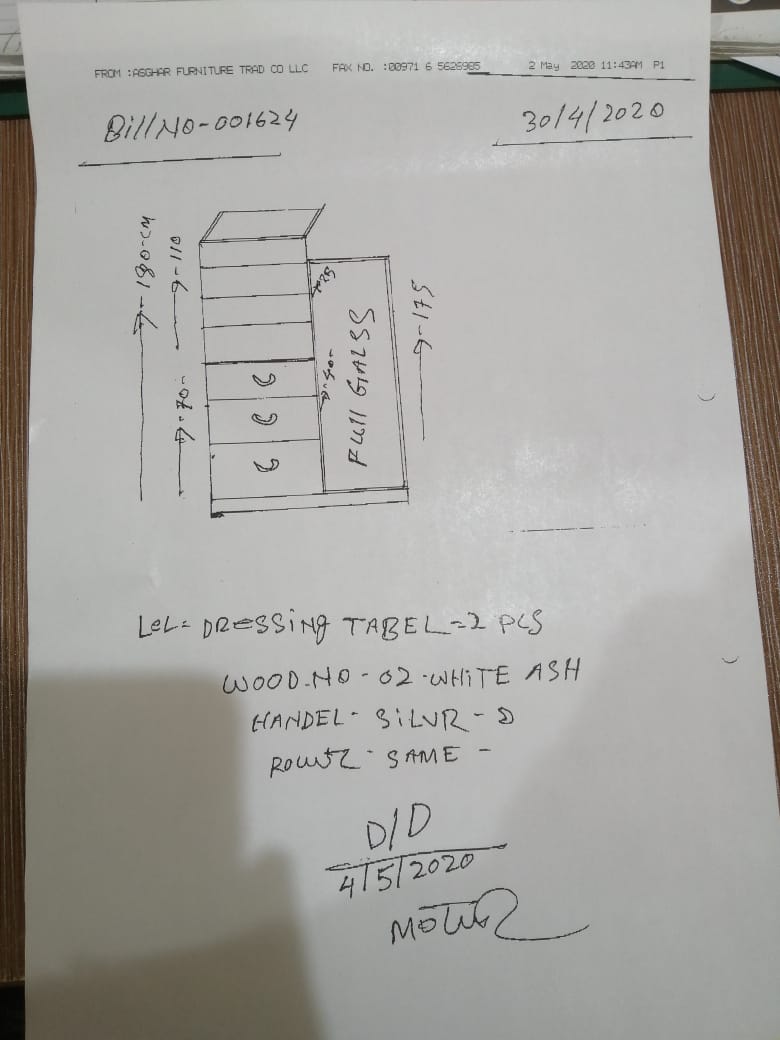 FROM :ASGHAR FURNITURE TRAD CO LLC FAX NO. :00971 6 5626985 2 May 2020 11:43AM P1
Bill NO-001624
30/4/2020
180-CM
110
70-
25
40-
FUll GALSS
175
LeL= DRESSiNg TABEL=2 PCS
WOOD.NO-02-WHiTE ASH
HANDEL- SiLVR-
SAME -
D/D
4/5/2020